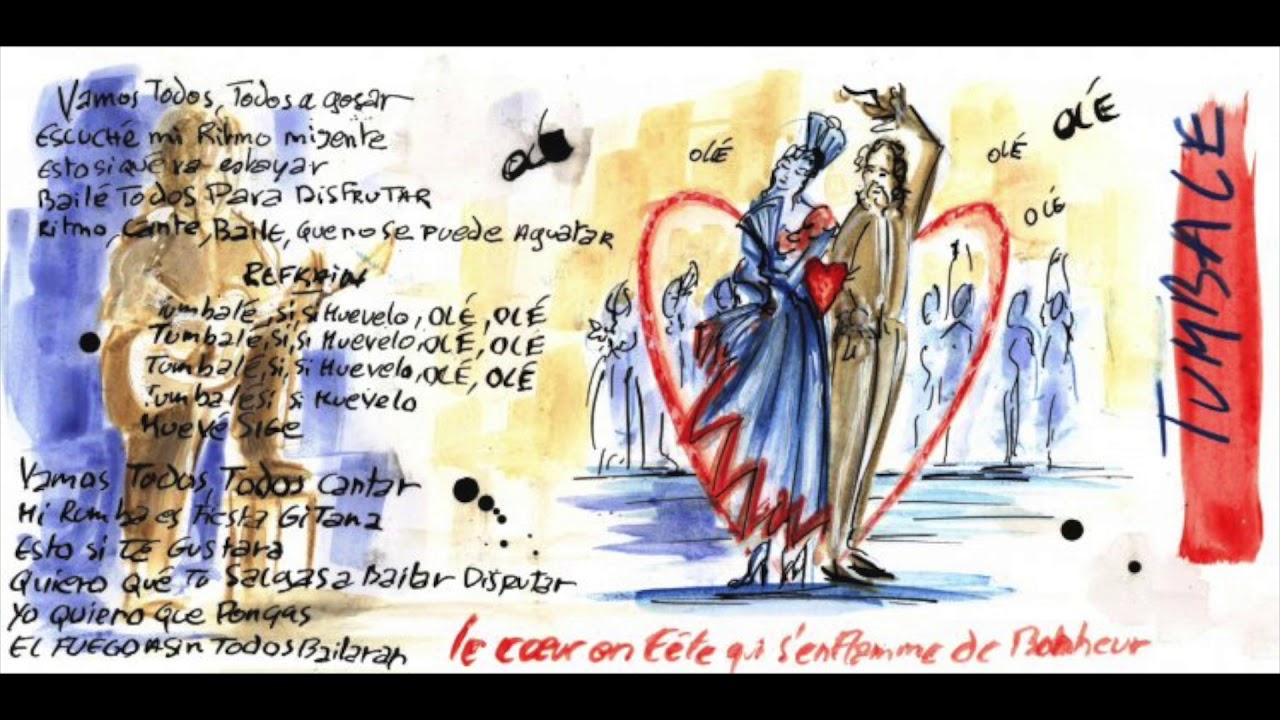 Vamos Todos, Todos a gosar
ESCUCHÉ mi Ritmo migente
Esto si qué va estayar
Bailé Todos Para DISFRUTAR
Ritmo, Cante, Baile, Que no se Puede Aguatar
REFRAIN
Tumbalé, si, si Muevelo, OLÉ, OLÉ
Tumbalé, Si, Si Muevelo, OLÉ, OLÉ
Tumbalé, Si, Si Muevelo, OLÉ, OLÉ
Tumbalé si si Muevelo
Muevé SIGE
Vamos Todos Todos Cantar
Mi Rumba es Fiesta Gitana
Esto si TE Gustara
Quiero Qué Tu Salgas a Bailar Disputar
Yo Quiero Que Pongas
EL FUEGO ASin Todos Bailaran
OLÉ
OLÉ
OLÉ
OLÉ
OLÉ
TUMBALE
le cœur en Fête qui s'enflemme de Bonheur